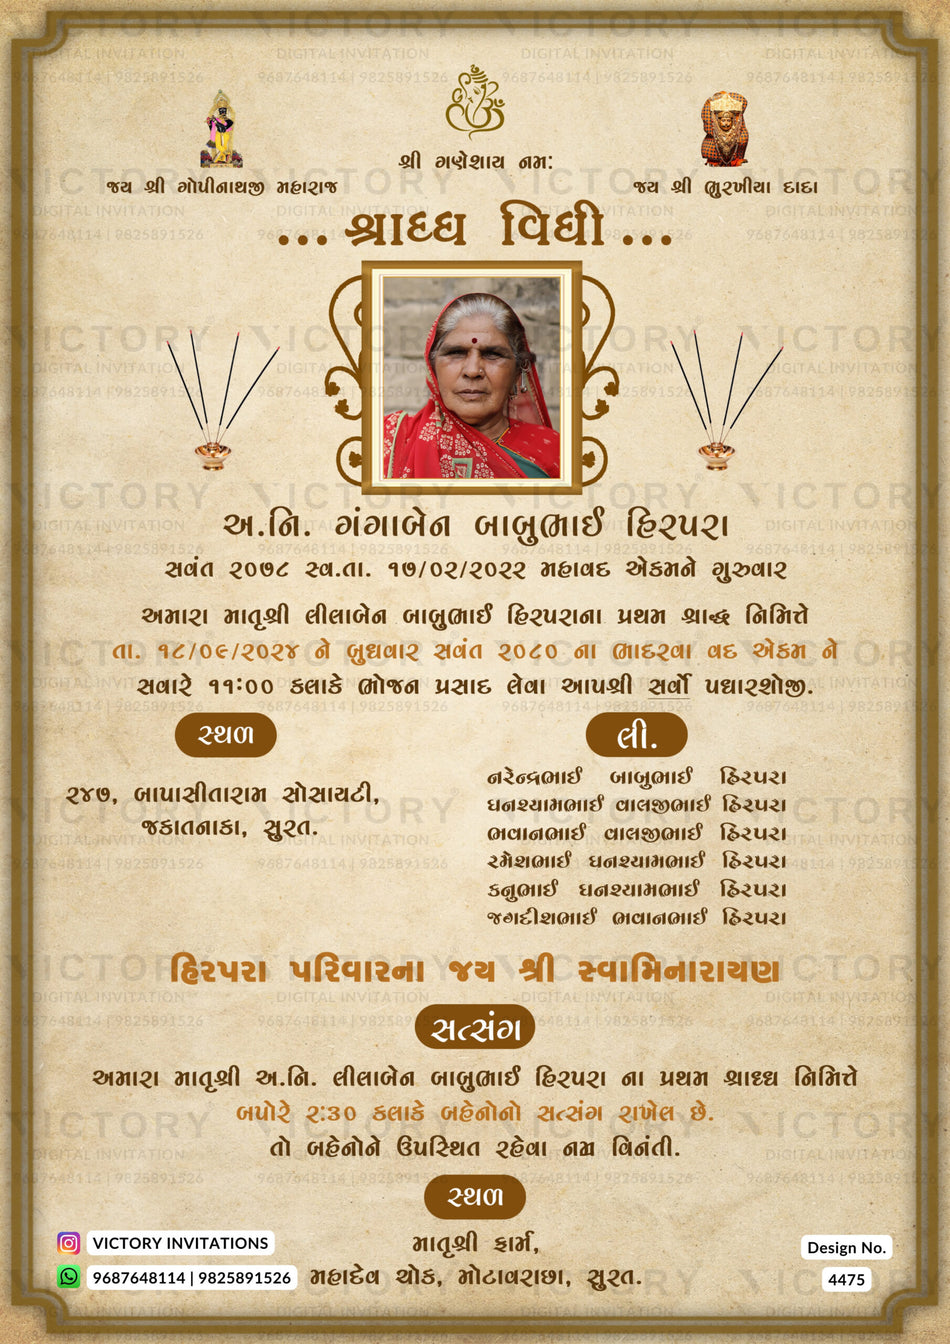 શ્રી ગણેશાય નમ:
જય શ્રી ગોપીનાથજી મહારાજ
જય શ્રી ભુરખીયા દાદા
...શ્રાધ્ધ વિધી...
અ.નિ. ગંગાબેન બાબુભાઈ હિરપરા
સવંત ૨૦૭૮ સ્વ.તા. ૧૭/૦૨/૨૦૨૨ મહાવદ એકમને ગુરુવાર
અમારા માતૃશ્રી લીલાબેન બાબુભાઈ હિરપરાના પ્રથમ શ્રાદ્ધ નિમિત્તે
તા. ૧૮/૦૯/૨૦૨૪ ને બુધવાર સવંત ૨૦૮૦ ના ભાદરવા વદ એકમ ને
સવારે ૧૧:૦૦ કલાકે ભોજન પ્રસાદ લેવા આપશ્રી સર્વો પધારશોજી.
સ્થળ
૨૪૭, બાપાસીતારામ સોસાયટી,
જકાતનાકા, સુરત.
લી.
નરેન્દ્રભાઈ બાબુભાઈ હિરપરા
ઘનશ્યામભાઈ વાલજીભાઈ હિરપરા
ભવાનભાઈ વાલજીભાઈ હિરપરા
રમેશભાઈ ઘનશ્યામભાઈ હિરપરા
કનુભાઈ ઘનશ્યામભાઈ હિરપરા
જગદીશભાઈ ભવાનભાઈ હિરપરા
હિરપરા પરિવારના જય શ્રી સ્વામિનારાયણ
સત્સંગ
અમારા માતૃશ્રી અ.નિ. લીલાબેન બાબુભાઈ હિરપરા ના પ્રથમ શ્રાધ્ધ નિમિત્તે
બપોરે ૨:૩૦ કલાકે બહેનોનો સત્સંગ રાખેલ છે.
તો બહેનોને ઉપસ્થિત રહેવા નમ્ર વિનંતી.
સ્થળ
માતૃશ્રી ફાર્મ,
મહાદેવ ચોક, મોટાવરાછા, સુરત.
VICTORY INVITATIONS
9687648114 | 9825891526
Design No.
4475